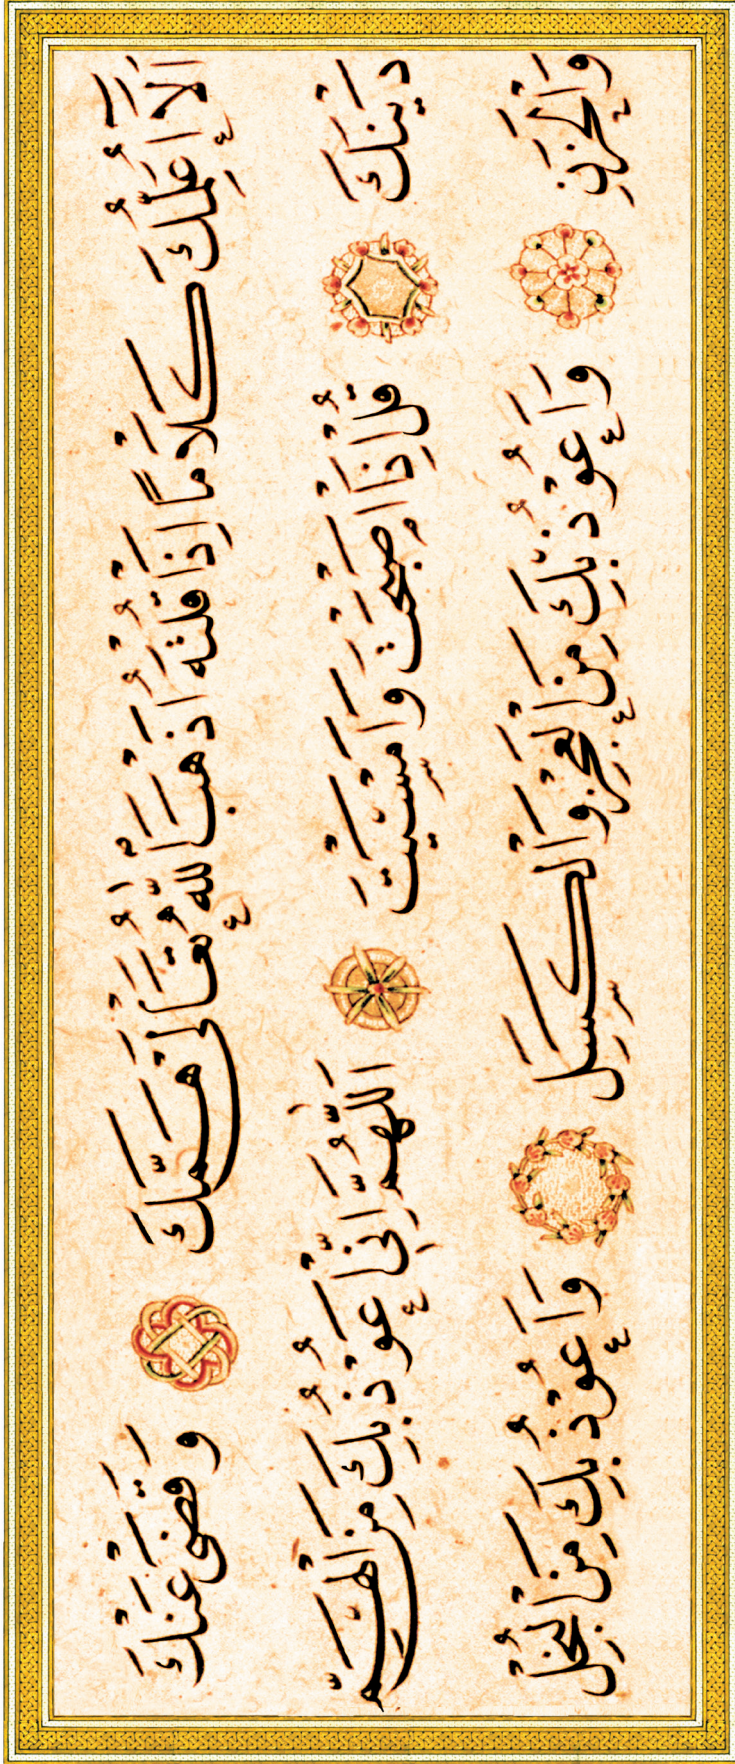 اَلَا اُعَلِّمُكَ كَلَامًا اِذَا قُلْتَهُ اَذْهَبَ اللّٰهُ تَعَالَى هَمَّكَ وَقَضَى عَنْكَ
دَيْنَكَ قُلْ اِذَا اَصْبَحْتَ وَاَمْسَيْتَ اَللّٰهُمَّ اِنِّي اَعُوذُ بِكَ مِنَ الْهَمِّ
وَالْحَزَنِ وَاَعُوذُ بِكَ مِنَ الْعَجْزِ وَالْكَسَلِ وَاَعُوذُ بِكَ مِنَ الْبُخْلِ